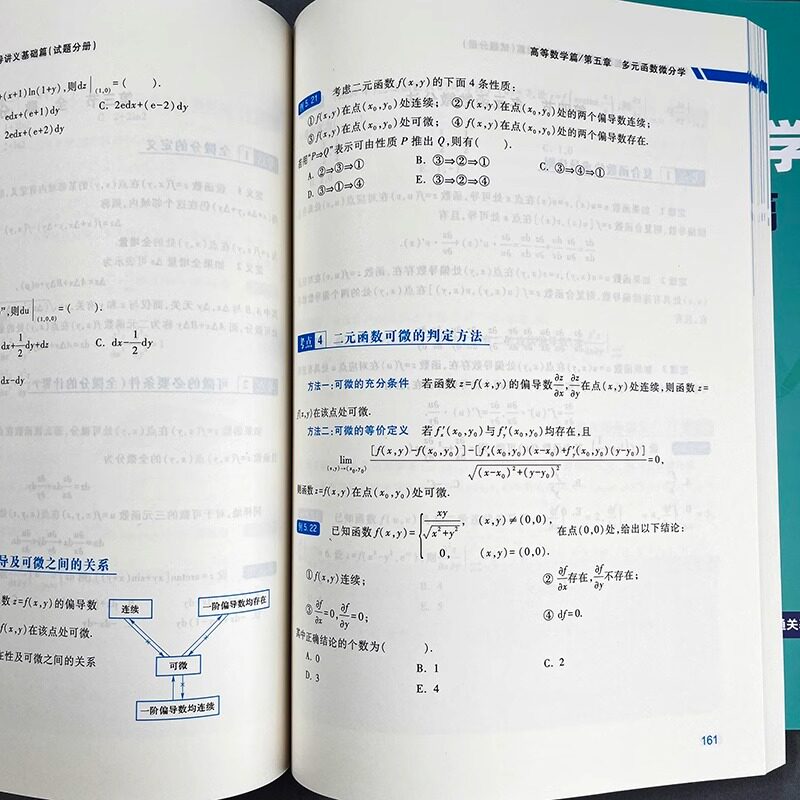 导讲义基础篇(试题分册)
+(x+1)ln(1+y),则dz|(1,0)=(    ).
edx+(e+1)dy
C. 2edx+(e-2)dy
2edx+(e+2)dy
",则du|(1,0,0)=(    ).
dx+1/2dy+dz
C. dx-1/2dy
dx-dy
导及可微之间的关系
数z=f(x,y)的偏导数
f(x,y)在该点处可微.
在性及可微之间的关系
连续
一阶偏导数均存在
可微
一阶偏导数均连续
高等数学篇/第五章 多元函数微分学
例5.21 考虑二元函数f(x,y)的下面4条性质:
①f(x,y)在点(x₀,y₀)处连续; ②f(x,y)在点(x₀,y₀)处的两个偏导数连续;
③f(x,y)在点(x₀,y₀)处可微; ④f(x,y)在点(x₀,y₀)处的两个偏导数存在.
若用"P⇒Q"表示可由性质P推出Q,则有(    ).
A. ②⇒③⇒①
B. ③⇒②⇒①
C. ③⇒④⇒①
D. ③⇒①⇒④
E. ③⇒②⇒④
考点 4 二元函数可微的判定方法
方法一:可微的充分条件 若函数z=f(x,y)的偏导数∂z/∂x,∂z/∂y在点(x,y)处连续,则函数z=
f(x,y)在该点处可微.
方法二:可微的等价定义 若f′ₓ(x₀,y₀)与f′ᵧ(x₀,y₀)均存在,且
lim (x,y)→(x₀,y₀) {[f(x,y)-f(x₀,y₀)]-[f′ₓ(x₀,y₀)(x-x₀)+f′ᵧ(x₀,y₀)(y-y₀)]}/√((x-x₀)²+(y-y₀)²)=0,
则函数z=f(x,y)在点(x₀,y₀)处可微.
例5.22 已知函数f(x,y)={xy/√(x²+y²), (x,y)≠(0,0), 在点(0,0)处,给出以下结论:
0, (x,y)=(0,0).
①f(x,y)连续;
②∂f/∂x存在,∂f/∂y不存在;
③∂f/∂x=0,∂f/∂y=0;
④df=0.
其中正确结论的个数为(    ).
A. 0
B. 1
C. 2
D. 3
E. 4
161
学
通关